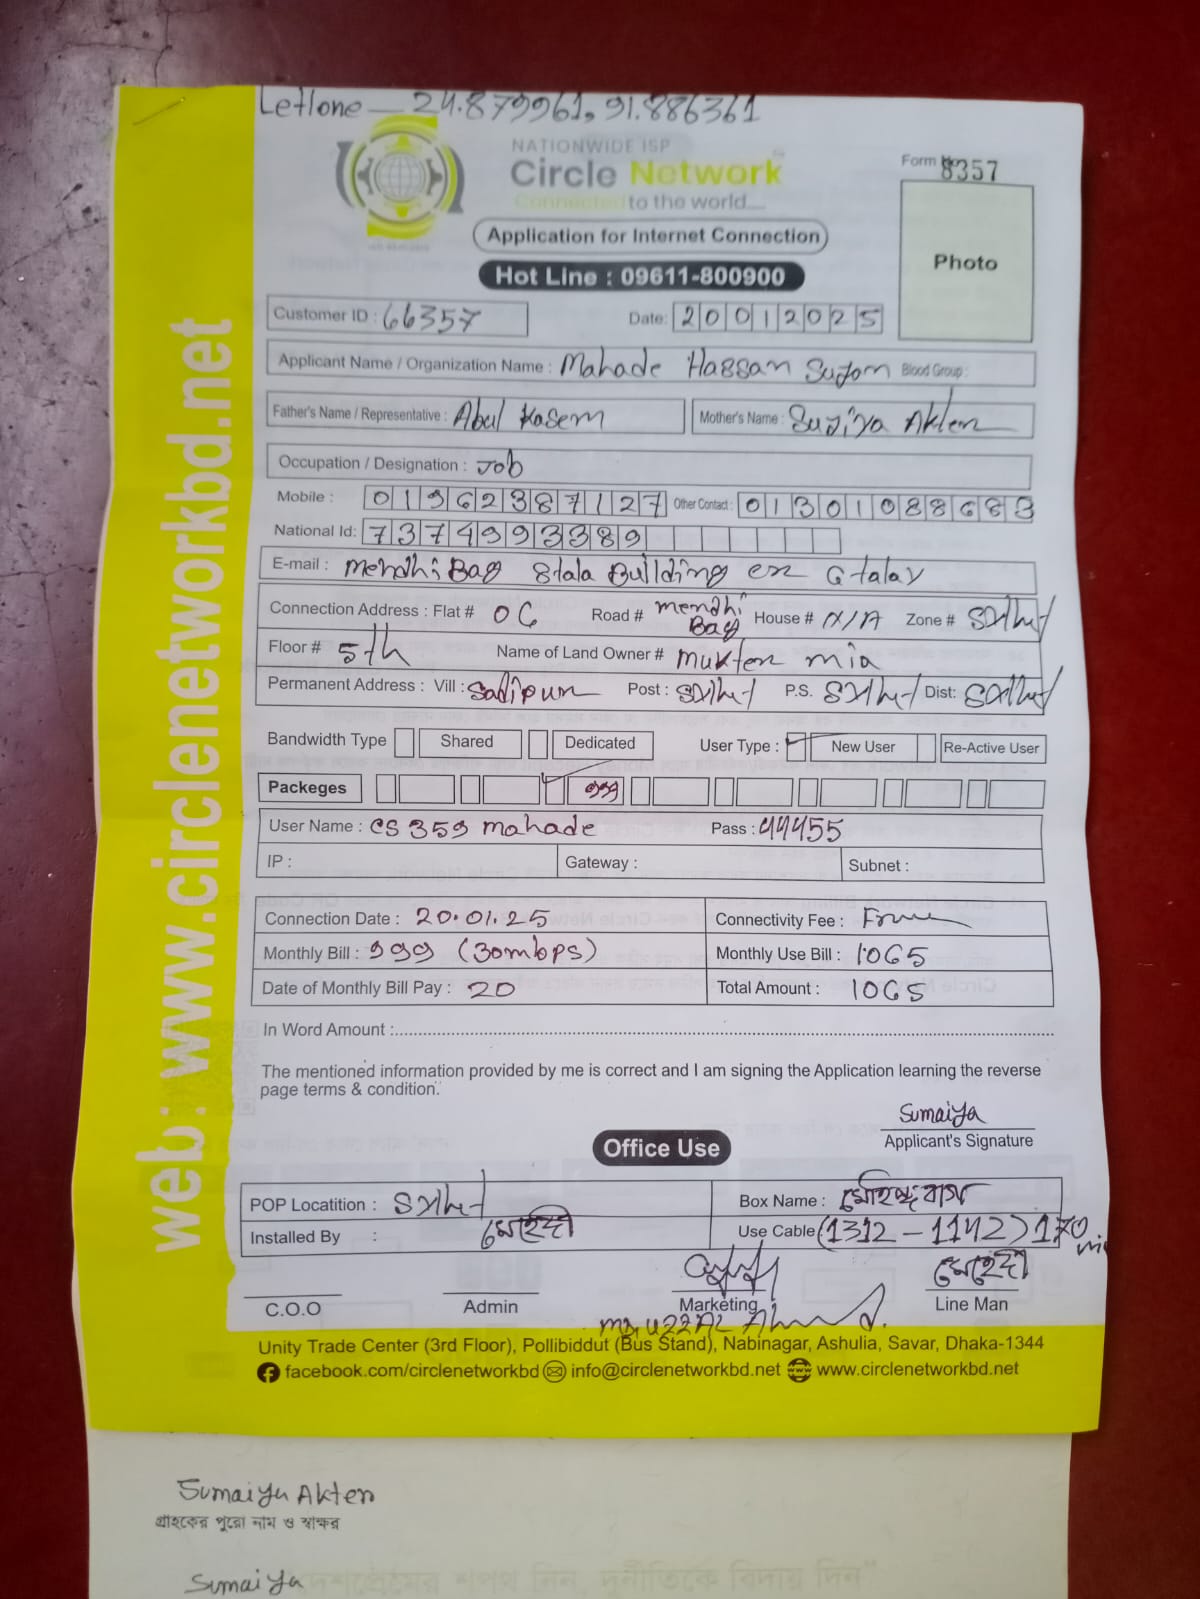 Letlone — 24.879961, 91.886361
NATIONWIDE ISP
Circle Network
Connected to the world...
Form No 8357
Application for Internet Connection
Photo
Hot Line : 09611-800900
Customer ID : 66357 Date: 20012025
Applicant Name / Organization Name : Mahade Hassan Sujon Blood Group :
Father's Name / Representative : Abul Kasem Mother's Name : Sujiya Akter
Occupation / Designation : Job
Mobile : 01962387127 Other Contact : 01301088683
National Id: 7374993389
E-mail : Mendhi Bag 8tala Building er 6 talay
Connection Address : Flat # 06 Road # mendhi Bag House # N/A Zone # Sylhet
Floor # 5th Name of Land Owner # mukter mia
Permanent Address : Vill : Sadipur Post : Sylhet P.S. Sylhet Dist: Sylhet
Bandwidth Type Shared Dedicated User Type : New User Re-Active User
Packeges 999
User Name : CS359 mahade Pass : 44455
IP : Gateway : Subnet :
Connection Date : 20.01.25 Connectivity Fee : Free
Monthly Bill : 999 (30mbps) Monthly Use Bill : 1065
Date of Monthly Bill Pay : 20 Total Amount : 1065
In Word Amount :
The mentioned information provided by me is correct and I am signing the Application learning the reverse
page terms & condition.
Sumaiya
Applicant's Signature
Office Use
POP Locatition : Sylhet Box Name :
Installed By : মেহেদী Use Cable (1312 – 1142) 170
মেহেদী
C.O.O Admin Marketing Line Man
Unity Trade Center (3rd Floor), Pollibiddut (Bus Stand), Nabinagar, Ashulia, Savar, Dhaka-1344
facebook.com/circlenetworkbd info@circlenetworkbd.net www.circlenetworkbd.net
web: www.circlenetworkbd.net
Sumaiya Akter
গ্রাহকের পুরো নাম ও স্বাক্ষর
Sumaiya